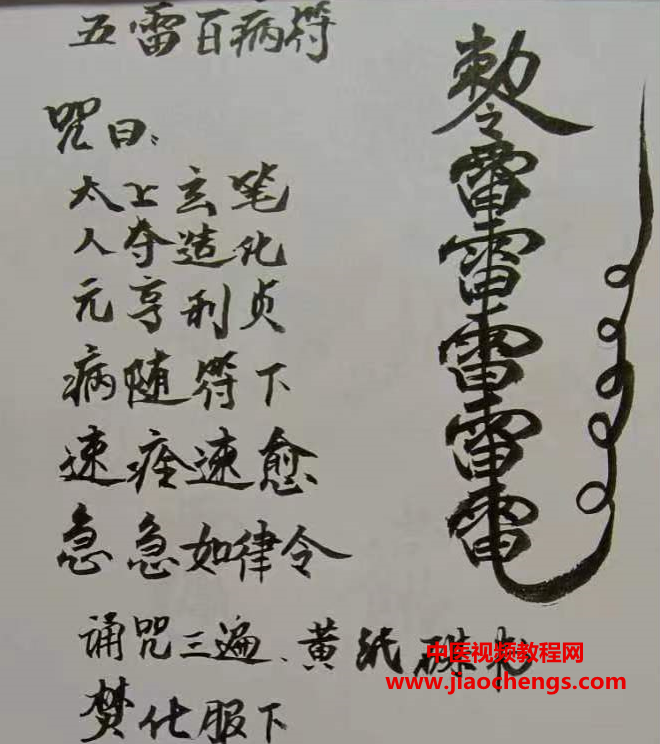 五雷百病符
咒曰:
太上玄笔
人夺造化
元亨利贞
病随符下
速痊速愈
急急如律令
诵咒三遍、黄纸硃书
焚化服下
敕令
雷
雷
雷
雷
雷
中医视频教程网
www.jiaochengs.com